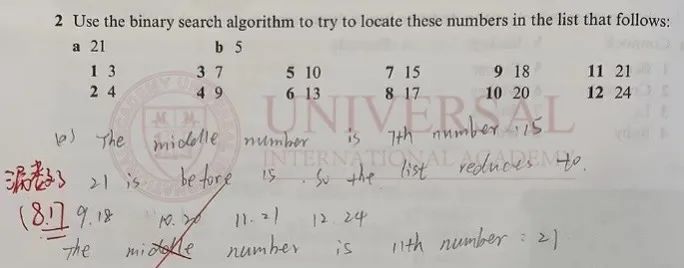 2 Use the binary search algorithm to try to locate these numbers in the list that follows:
a 21 b 5
1 3 3 7 5 10 7 15 9 18 11 21
2 4 4 9 6 13 8 17 10 20 12 24
UNIVERSAL
INTERNATIONAL ACADEMY
(a) The middle number is 7th number : 15
21 is before 15 . So the list reduces to.
9.18 10.20 11.21 12.24
The middle number is 11th number : 21